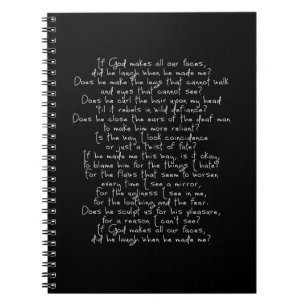 If God makes all our faces,
did he laugh when he made me?
Does he make the legs that cannot walk
and eyes that cannot see?
Does he curl the hair upon my head
'til it rebels in wild defiance?
Does he close the ears of the deaf man
to make him more reliant?
Is the way I look coincidence
or just a twist of fate?
If he made me this way, is it okay,
to blame him for the things I hate?
For the flaws that seem to worsen
every time I see a mirror,
For the ugliness I see in me,
for the loathing and the fear.
Does he sculpt us for his pleasure,
for a reason I can't see?
If God makes all our faces,
did he laugh when he made me?